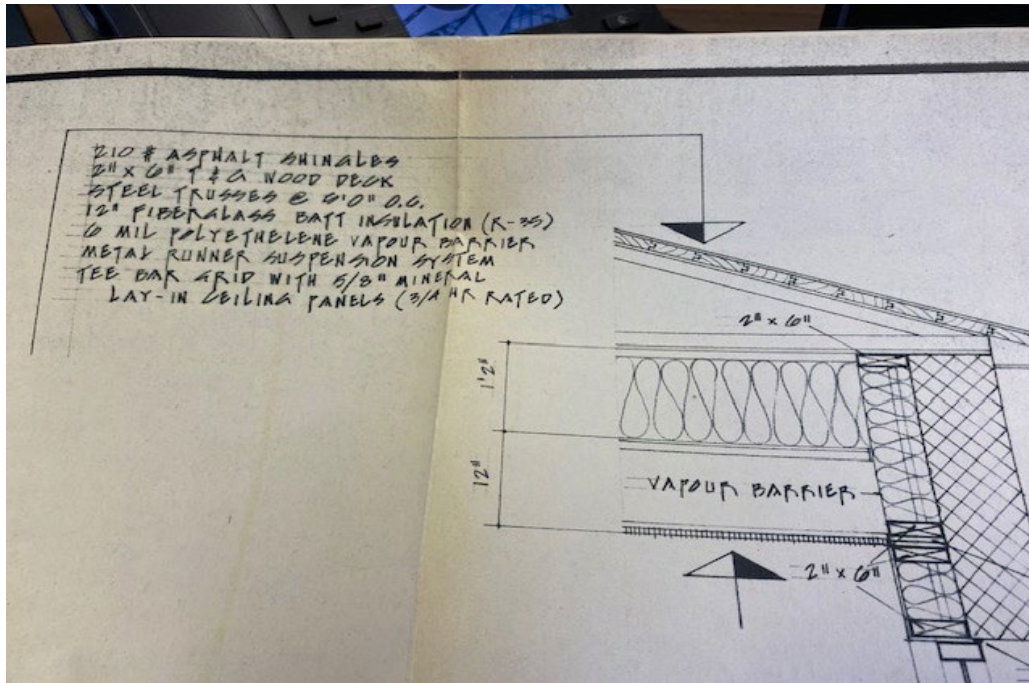 210 # ASPHALT SHINGLES
2" X 6" T & G WOOD DECK
STEEL TRUSSES @ 6'0" O.C.
12" FIBERGLASS BATT INSULATION (R-35)
6 MIL POLYETHELENE VAPOUR BARRIER
METAL RUNNER SUSPENSION SYSTEM
TEE BAR GRID WITH 5/8" MINERAL
LAY-IN CEILING PANELS (3/4 HR RATED)
2" x 6"
1'2"
12"
VAPOUR BARRIER
2" x 6"